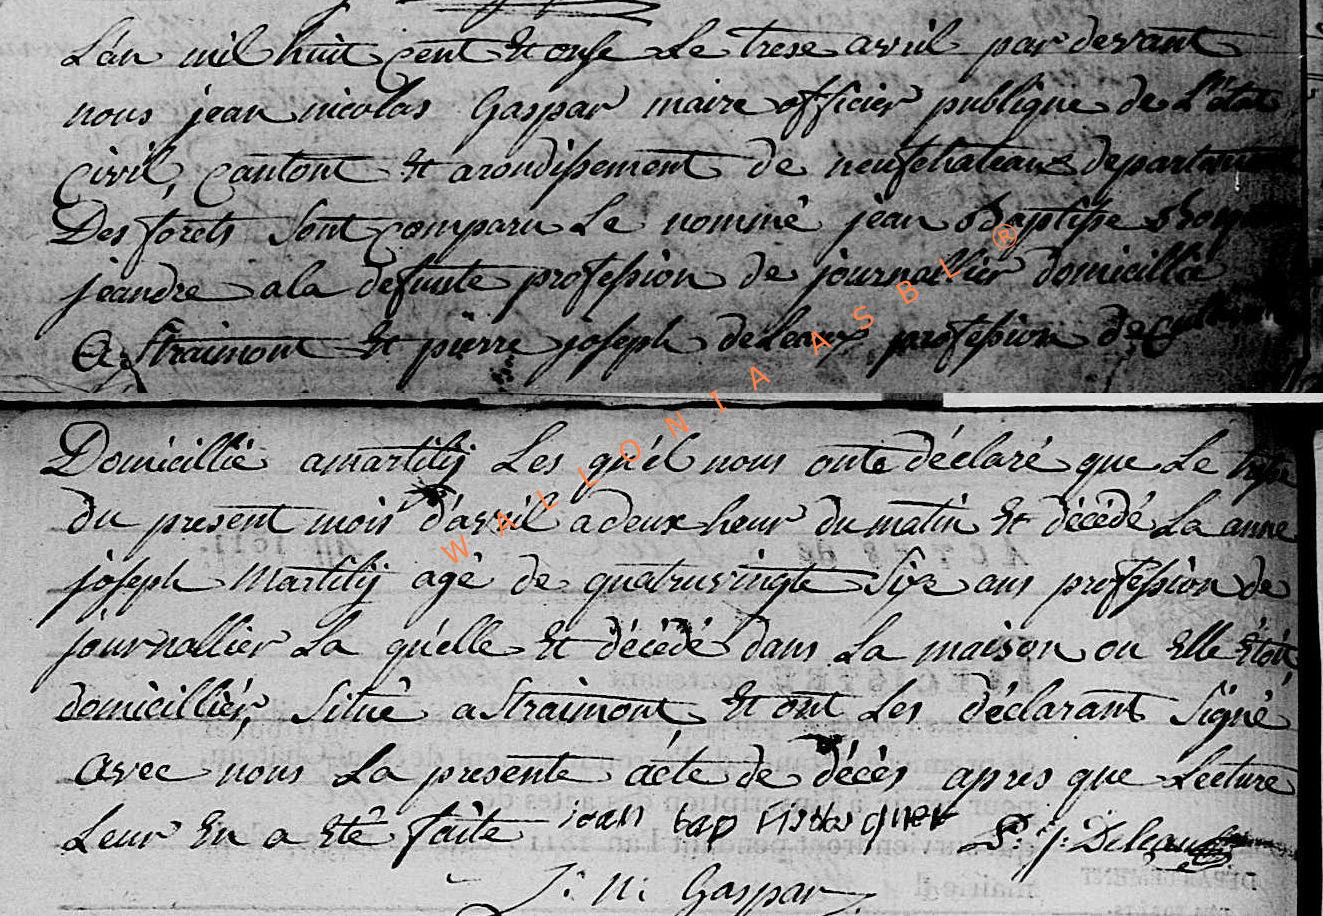 L'an mil huit cent Et onse Le trese avril par devant
nous jean nicolas Gaspar maire officier publique de L'état
Civil, cantont Et arondissement de neufchateaux departament
Des forets sont comparu Le nommé jean Baptiste
jeandre a la defunte profession de journallier domicillié
A Straimont Et pierre joseph deLeaux profession de
Domicillié a martilij Les qu'él nous onte déclaré que Le trese
du present mois d'avril a deux heur du matin Et décédé La anne
joseph Martilij agé de quatruvingte Six ans profession de
journallier La qu'elle Et décédé dans La maison ou Elle étoit
domicilliér, Situé a Straimont, Et ont Les déclarant Signé
avec nous La presente acte de décès apres que Lecture
Leur En a été faite jean bap P: j: DeLeaux
J: N: Gaspar
WALLONIA ASBL ®